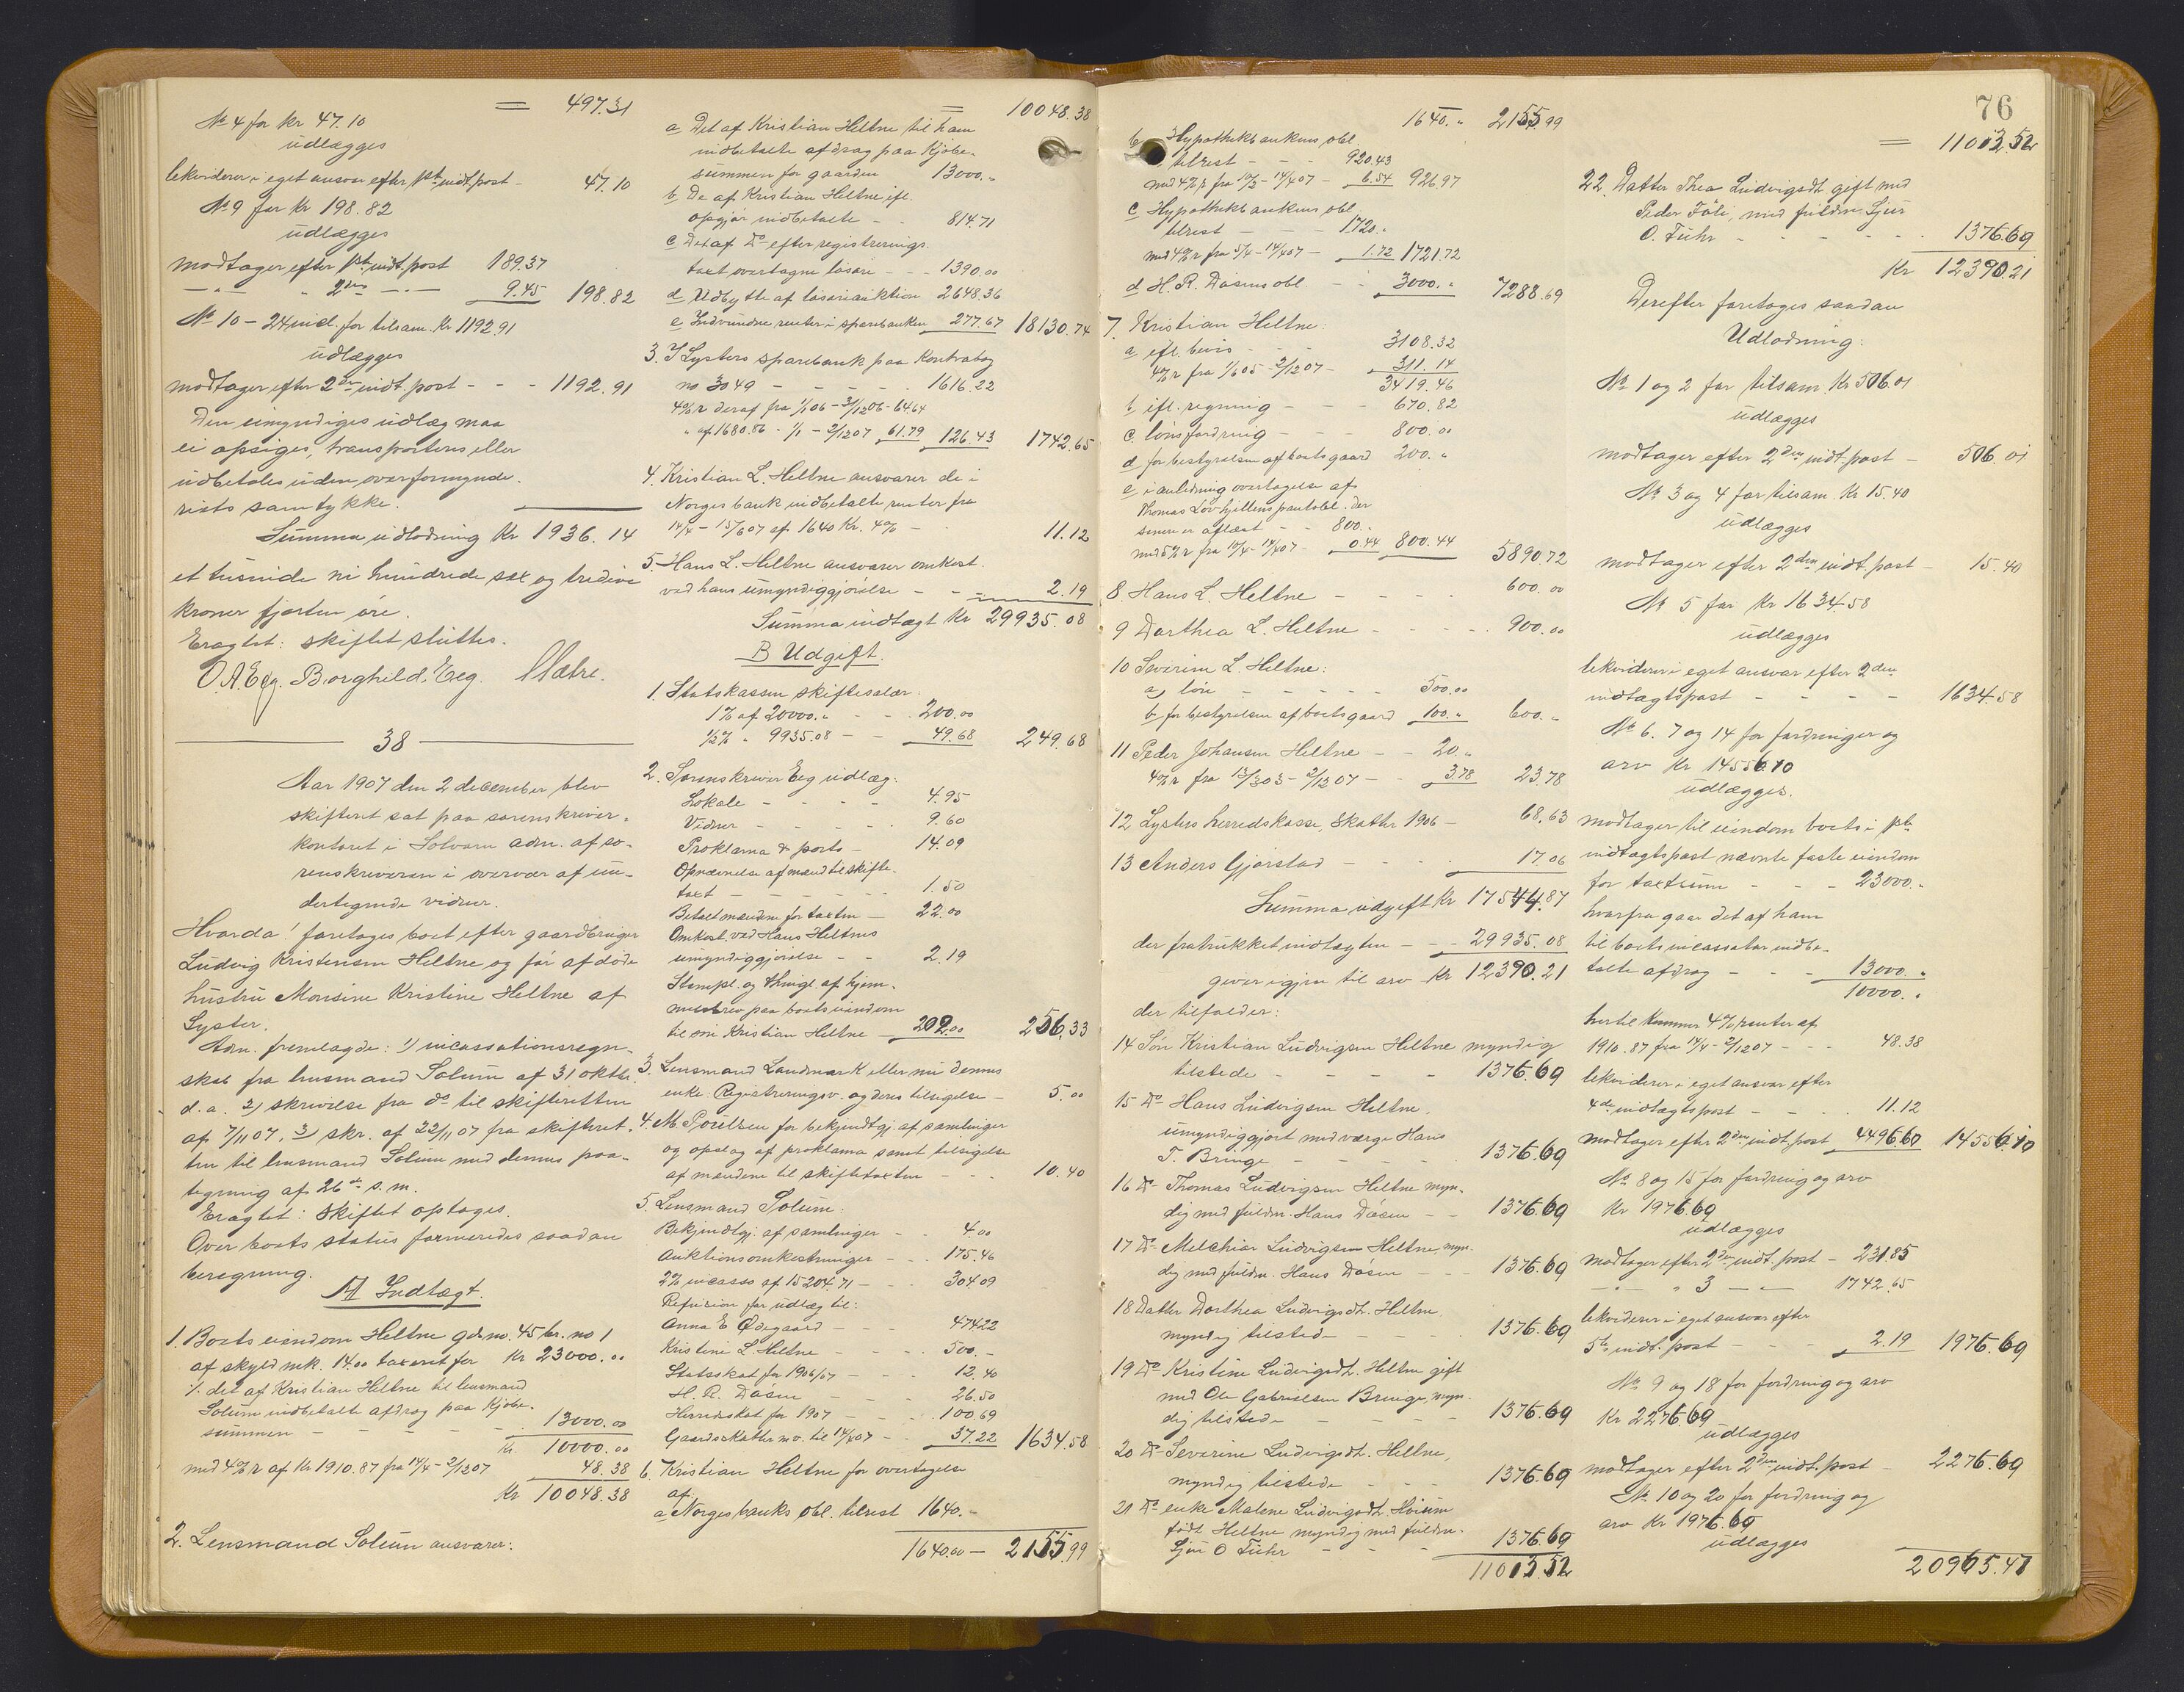 = 497.31
No 4 for Kr 47.10
udlægges
lekviderer i eget ansvar efter 1ste indt. post - 47.10
No 9 for Kr 198.82
udlægges
modtager efter 1ste indt. post 189.37
— " — " 2den — " — 9.45 198.82
No 10 - 24 incl. for tilsam. Kr 1192.91
udlægges
modtager efter 2den indt. post - - - 1192.91
Den umyndiges udlæg maa
ei opsiges, transporteres eller
udbetales uden overformynde-
riets samtykke.
Summa udlodning Kr 1936.14
et tusinde ni hundrede sex og tredive
kroner fjorten øre.
Eragtet: skiftet sluttes.
O. A. Eeg. Borghild Eeg.
38
Aar 1907 den 2 december blev
skifteret sat paa sorenskriver-
kontoret i Solvorn adm. af so-
renskriveren i overvær af un-
dertegnede vidner.
Hvorda! foretoges boet efter gaardbruger
Ludvig Kristensen Heltne og før afdøde
hustru Monsine Kristine Heltne af
Lyster.
Adm. fremlagde: 1) incassationsregn-
skab fra lensmand Solum af 31 oktbr.
d. a. 2) skrivelse fra do til skifteretten
af 7/11 07, 3) skr. af 22/11 07 fra skifteret-
ten til lensmand Solum med dennes paa-
tegning af 26de s. m.
Eragtet: Skiftet optages.
Over boets status formeredes saadan
beregning.
A Indtægt.
1. Boets eiendom Heltne gds no. 45 br. no 1
af skyld mk. 14.00 taxeret for Kr 23000.00
÷ det af Kristian Heltne til lensmand
Solum indbetalte afdrag paa kjøbe-
summen - - - - 13000.00
Kr. 10000.00
med 4% r af Kr 1910.87 fra 14/4 - 2/12 07 48.38
Kr 10048.38
2. Lensmand Solum ansvarer:
= 10048.38
a Det af Kristian Heltne til ham
indbetalte afdrag paa kjøbe-
summen for gaarden 13000.-
b De af Kristian Heltne ifl.
opgjør indbetalte - - 814.71
c Det af Do efter registrerings-
taxt overtagne løsøre - - 1390.00
d Udbytte af løsøreauktion 2648.36
e Indvundne renter i sparebanken 277.67 18130.74
3. I Lysters sparebank paa Kontrabog
no 3049 - - - - 1616.22
4% r deraf fra 1/1 06 - 31/12 06 - 64.64
" af 1680.86 - 1/1 - 2/12 07 61.79 126.43 1742.65
4. Kristian L. Heltne ansvarer de i
Norges bank indbetalte renter fra
14/4 - 15/6 07 af 1640 Kr. 4% - 11.12
5. Hans L. Heltne ansvarer omkost.
ved hans umyndiggjørelse - - 2.19
Summa indtægt Kr 29935.08
B Udgift.
1. Statskassen skiftesalær
1% af 20000.- - - 200.00
1/2% " 9935.08 - - 49.68 249.68
2. Sorenskriver Eeg udlæg:
Lokale - - - - 4.95
Vidner - - - - 9.60
Proklama & porto - 14.09
Opnævnelse af mænd til skifte-
taxt - - - - 1.50
Betalt mændene for taxten - 22.00
Omkost. ved Hans Heltnes
umyndiggjørelse - - 2.19
Stempl. og thingl. af hjem-
melsbrev paa boets eiendom
til søn Kristian Heltne - 202.00 256.33
3. Lensmand Landmark eller nu dennes
enke Registreringsv. og deres tilsigelse - 5.00
4. M. Pørelsen for bekjendtgj. af samlinger
og opslag af proklama samt tilsigelse
af mændene til skiftetaxten - - 10.40
5. Lensmand Solum:
Bekjendtgj. af samlinger - - 4.00
Auktionsomkostninger - - 175.46
2% incasso af 15204.71 - - 304.09
Refusion for udlæg til:
Anna E Ødegaard - - - 474.22
Kristine L. Heltne - - - 500.-
Statsskat for 1906/07 - - - 12.40
H. R. Døsen - - - 26.50
Herredsskat for 1907 - - - 100.69
Gaardsskatter m.v. til 14/4 07 - - 37.22 1634.58
6. Kristian Heltne for overtagelse
af:
a Norges banks obl. tilrest 1640.-
1640.00 - 2155.99
76
1640.- 2155.99
b Hypothekbankens obl.
tilrest - - - 920.43
med 4% r fra 10/2 - 14/4 07 - 6.54 926.97
c Hypothekbankens obl.
tilrest - - - 1720.-
med 4% r fra 5/4 - 14/4 07 - 1.72 1721.72
d H. R. Døsens obl. - - 3000.- 7288.69
7. Kristian Heltne:
a ifl. bevis - - - 3108.32
4% r fra 1/6 05 - 2/12 07 - 311.14
3419.46
b ifl. regning - - - 670.82
c. lønsfordring - - - 800.00
d for bestyrelsen af boets gaard 200.-
e i anledning overtagelse af
Thomas Løvhjellens pantobl. der
senere er aflæst - - 800.-
med 5% r fra 10/4 - 14/4 07 - 0.44 800.44 5890.72
8. Hans L. Heltne - - - - 600.00
9 Dorthea L. Heltne - - - - 900.00
10 Severine L. Heltne:
a) løn - - - - 500.00
b for bestyrelsen af boets gaard 100.- 600.-
11 Peder Johansen Heltne - - 20.-
4% r fra 13/3 03 - 2/12 07 - - 3.78 23.78
12 Lysters herredskasse, Skatter 1906 - 68.63
13 Anders Gjørstad - - - - 17.06
Summa udgift Kr 17544.87
der fratrukket indtægten - - - 29935.08
giver igjen til arv Kr 12390.21
der tilfalder:
14 Søn Kristian Ludvigsen Heltne myndig
tilstede - - - - 1376.69
15 Do Hans Ludvigsen Heltne,
umyndiggjort med værge Hans
T. Bringe - - - - 1376.69
16 Do Thomas Ludvigsen Heltne myn-
dig med fuldm. Hans Døsen - - 1376.69
17 Do Melchior Ludvigsen Heltne, myn-
dig med fuldm. Hans Døsen - - - 1376.69
18 Datter Dorthea Ludvigsdt. Heltne
myndig tilstede - - - 1376.69
19 Do Kristine Ludvigsdt. Heltne gift
med Ole Gabrielsen Bringe, myn-
dig tilstede - - - - 1376.69
20 Do Severine Ludvigsdt. Heltne,
myndig tilstede - - - 1376.69
21 Do enke Malene Ludvigsdt. Hvium
født Heltne myndig med fuldm.
Sjur O Fuhr - - - 1376.69
11013.52
= 11013.52
22. Datter Thea Ludvigsdt. gift med
Peder Føli, med fuldm. Sjur
O. Fuhr - - - - - 1376.69
Kr 12390.21
Derefter foretoges saadan
Udlodning:
No 1 og 2 for tilsam. Kr 506.01
udlægges
modtager efter 2den indt. post - 506.01
No 3 og 4 for tilsam. Kr 15.40
udlægges
modtager efter 2den indt. post - 15.40
No 5 for Kr 1634.58
udlægges
lekviderer i eget ansvar efter 2den
indtægtspost - - - - 1634.58
No 6. 7 og 14 for fordringer og
arv Kr 14556.10
udlægges.
modtager til eiendom boets i 1ste
indtægtspost nævnte faste eiendom
for taxtsum - - - 23000.-
hvorfra gaar det af ham
til boets incassator indbe-
talte afdrag - - - 13000.-
10000.-
hertil kommer 4% renter af
1910.87 fra 14/4 - 2/12 07 - - - 48.38
lekviderer i eget ansvar efter
4de indtægtspost - - - 11.12
modtager efter 2den indt. post 4496.60 14556.10
No 8 og 15 for fordring og arv
Kr 1976.69
udlægges
modtager efter 2den indt. post - 231.85
— " — " 3 — " — 1742.65
lekviderer i eget ansvar efter
5te indt. post - - - 2.19 1976.69
No 9 og 18 for fordring og arv
Kr 2276.69
udlægges
modtager efter 2den indt. post - 2276.69
No 10 og 20 for fordring og
arv Kr 1976.69
udlægges
20965.47